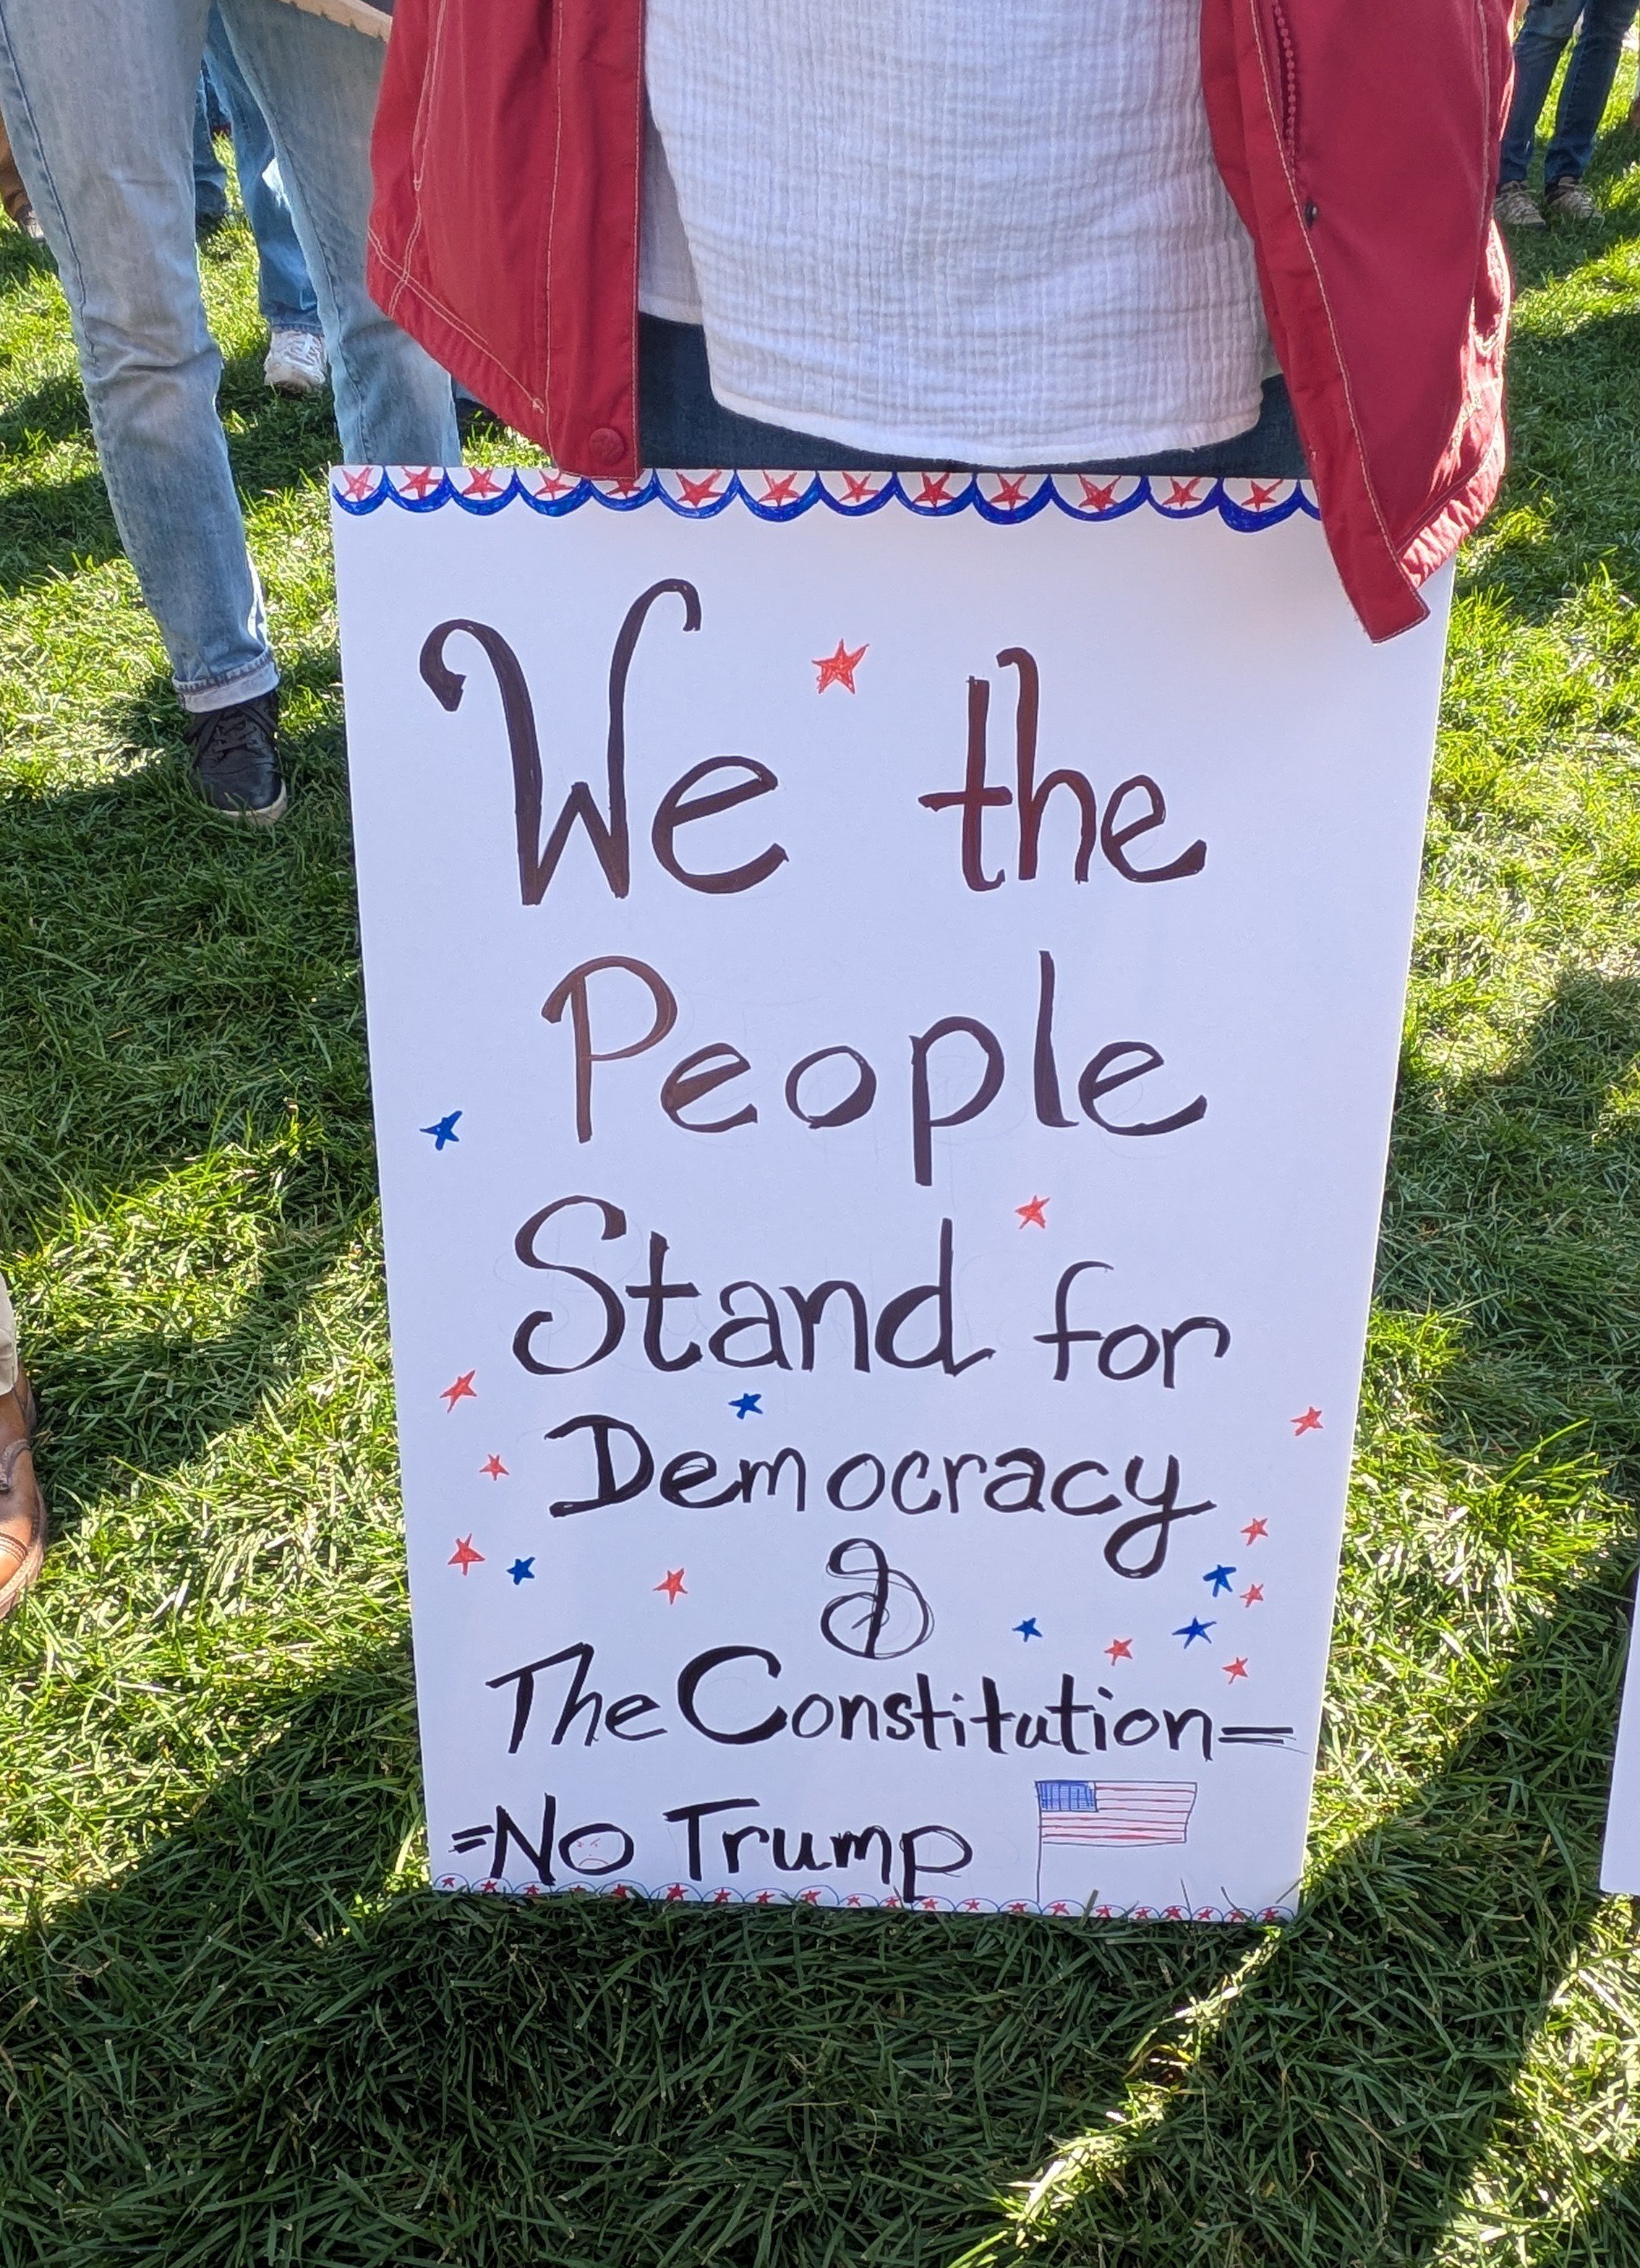 We the
People
Stand for
Democracy
&
The Constitution=
=No Trump